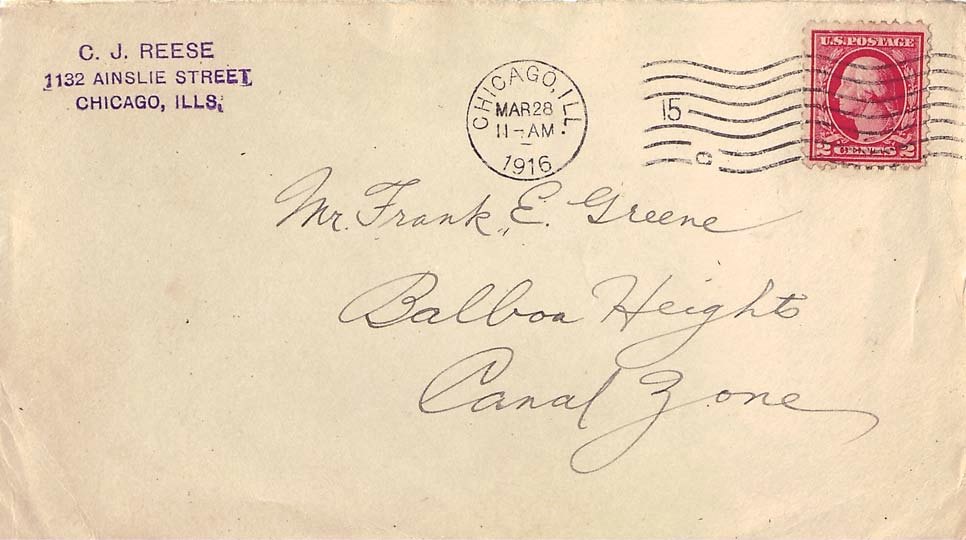 C. J. REESE
1132 AINSLIE STREET
CHICAGO, ILLS.
CHICAGO, ILL.
MAR 28
11-AM
1916
15
C
U.S. POSTAGE
2 CENTS 2
Mr. Frank E. Greene
Balboa Heights
Canal Zone